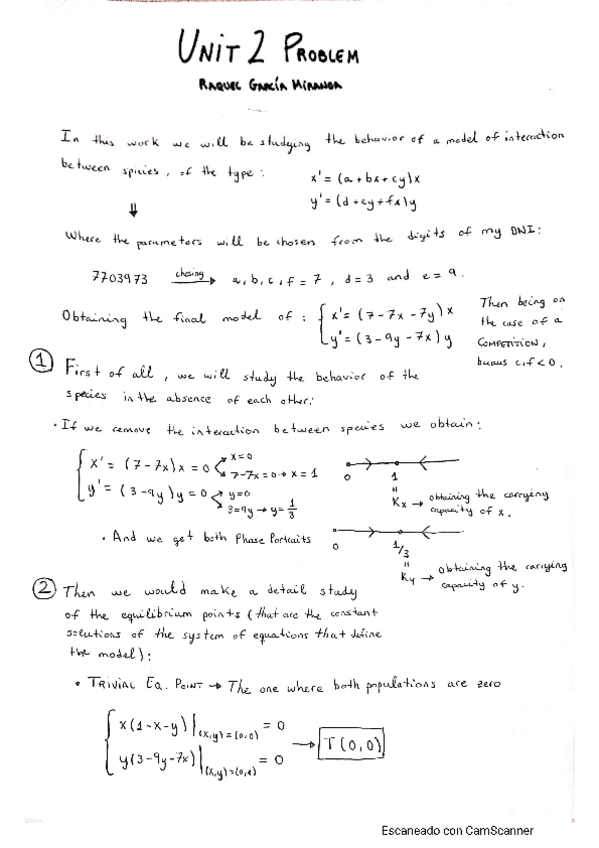 UNIT 2 PROBLEM
RAQUEL GARCÍA MIRANDA
In this work we will be studying the behavior of a model of interaction
between spicies, of the type:
x' = (a + bx + cy)x
y' = (d + ey + fx)y
⇓
Where the parameters will be chosen from the digits of my DNI:
7703973 chosing → a, b, c, f = 7, d = 3 and e = 9.
Obtaining the final model of: { x' = (7 - 7x - 7y)x
y' = (3 - 9y - 7x)y
Then being on
the case of a
COMPETITION,
c, f < 0.
① First of all, we will study the behavior of the
species in the absence of each other:
· If we remove the interaction between species we obtain:
{ x' = (7 - 7x)x = 0 x = 0
7 - 7x = 0 → x = 1
y' = (3 - 9y)y = 0 y = 0
3 = 9y → y = 1/3
0 1
= Kx → obtaining the carrying
capacity of x.
· And we get both Phase Portraits
0 1/3
= Ky → obtaining the carrying
capacity of y.
② Then we would make a detail study
of the equilibrium points (that are the constant
solutions of the system of equations that define
the model):
• TRIVIAL EQ. POINT → The one where both populations are zero
{ x(1 - x - y)|(x,y) = (0,0) = 0
y(3 - 9y - 7x)|(x,y) = (0,0) = 0
→ T(0,0)
Escaneado con CamScanner